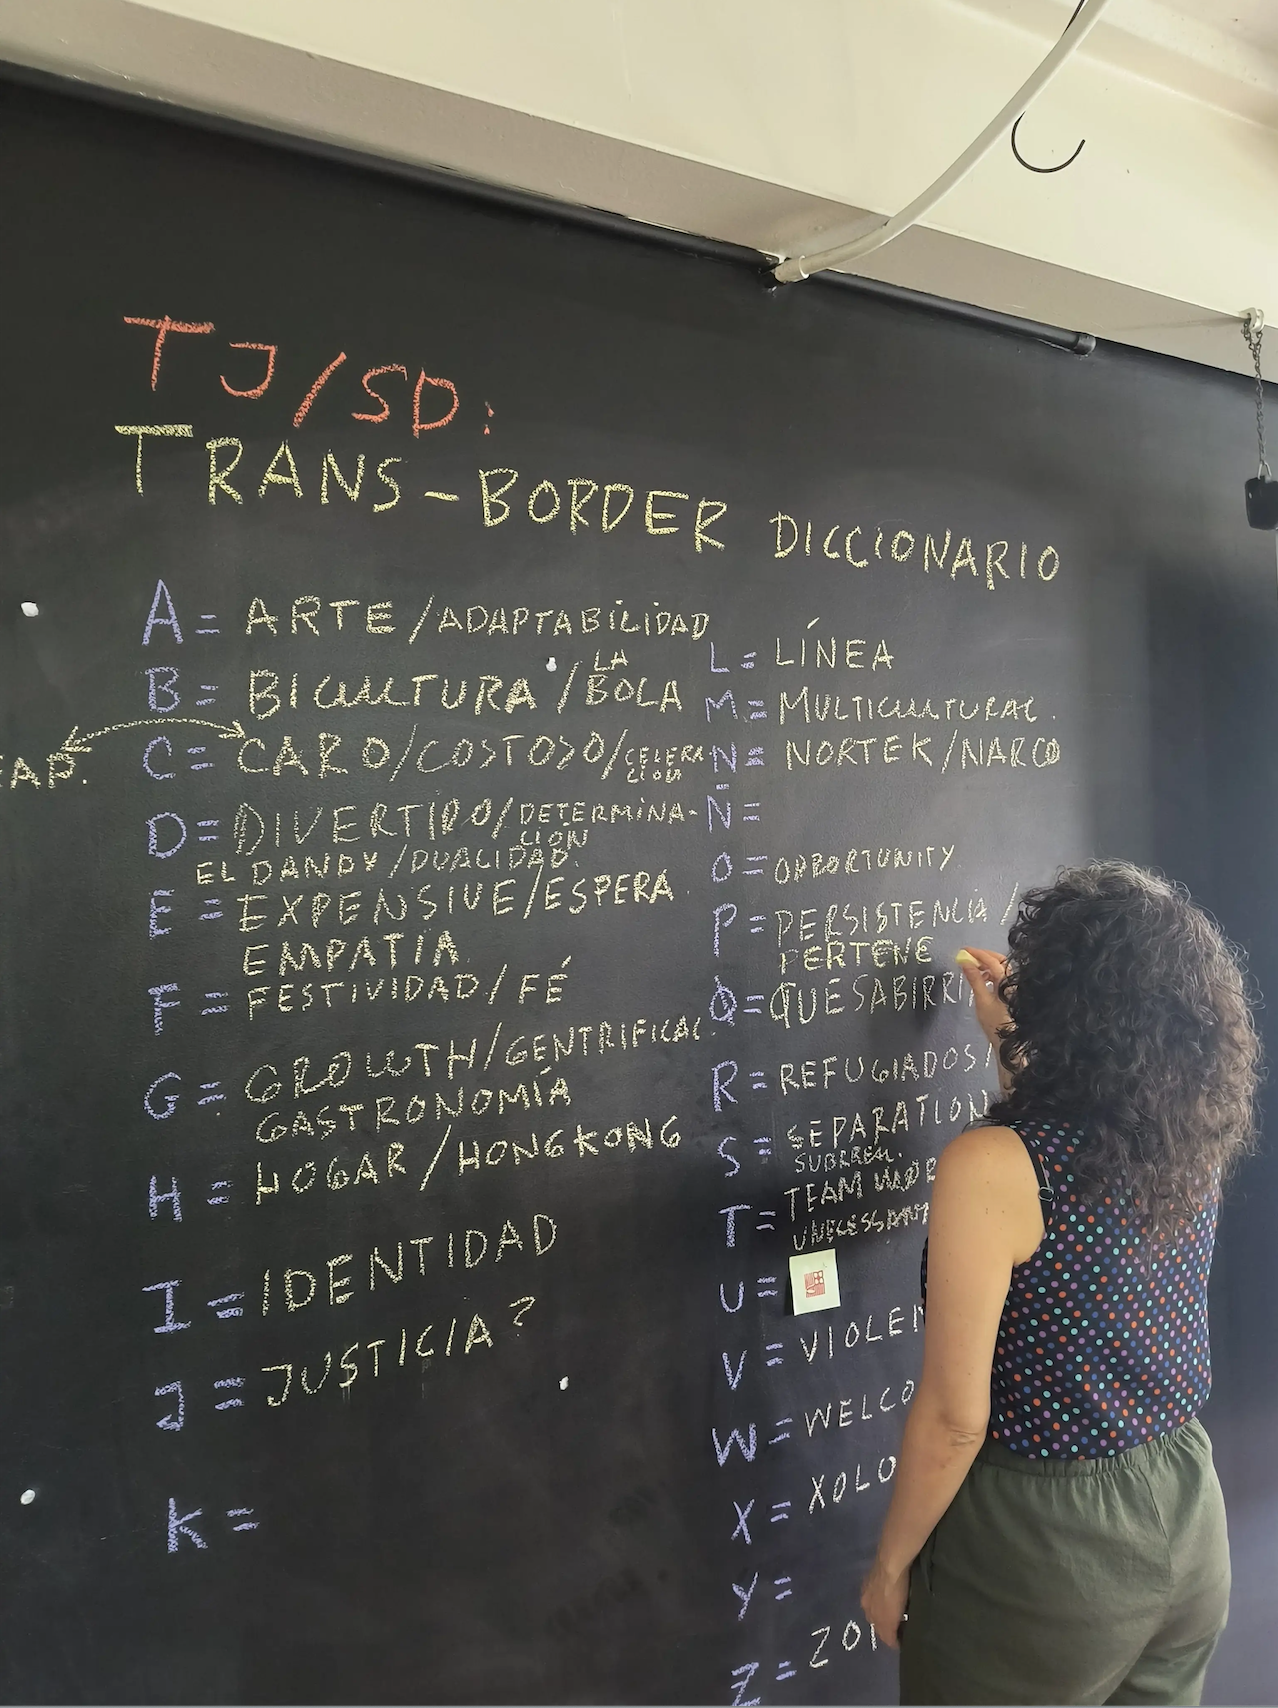 TJ/SD:
TRANS-BORDER DICCIONARIO
A = ARTE/ADAPTABILIDAD
B = BICULTURA/LA BOLA
C = CARO/COSTOSO/CELERA
CIÓN
EAP.
D = DIVERTIDO/DETERMINA-
CIÓN
EL DANDY/DUALIDAD.
E = EXPENSIVE/ESPERA
EMPATÍA
F = FESTIVIDAD/FÉ
G = GROWTH/GENTRIFICAC.
GASTRONOMÍA
H = HOGAR/HONGKONG
I = IDENTIDAD
J = JUSTICIA?
K =
L = LÍNEA
M = MULTICULTURAL.
N = NORTEK/NARCO
Ñ =
O = OPPORTUNITY
P = PERSISTENCIA/
PERTENE
Q = QUESABIRRI
R = REFUGIADOS/
S = SEPARATION
SURREAL.
T = TEAM
U =
V = VIOLEN
W = WELCO
X = XOLO
Y =
Z = ZON